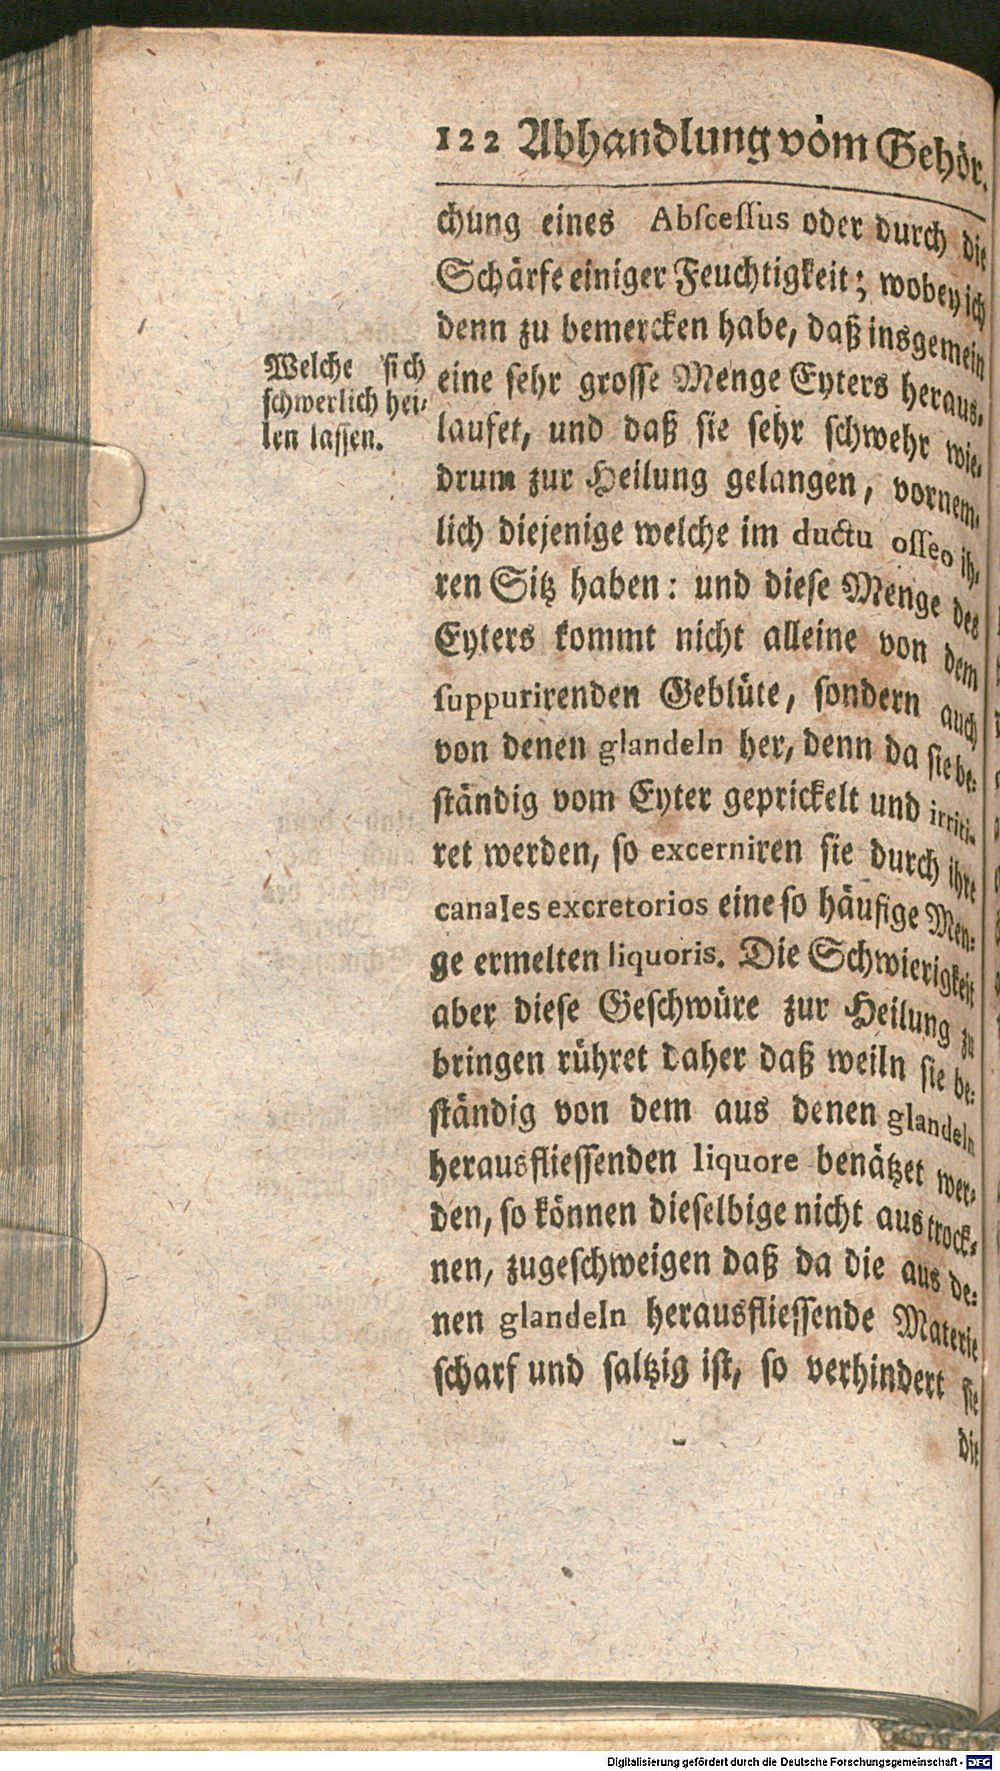 122 Abhandlung vom Gehör.
chung eines Abſceſſus oder durch die
Schärfe einiger Feuchtigkeit; wobey ich
denn zu bemercken habe, daß insgemein
Welche ſich
ſchwerlich hei-
len laſſen.
eine ſehr groſſe Menge Eyters heraus-
laufet, und daß ſie ſehr ſchwehr wie-
drum zur Heilung gelangen, vornem-
lich diejenige welche im ductu oſſeo ih-
ren Sitz haben: und dieſe Menge des
Eyters kommt nicht alleine von dem
ſuppurirenden Geblüte, ſondern auch
von denen glandeln her, denn da ſie be-
ſtändig vom Eyter geprickelt und irriti-
ret werden, ſo excerniren ſie durch ihre
canales excretorios eine ſo häufige Men-
ge ermelten liquoris. Die Schwierigkeit
aber dieſe Geſchwüre zur Heilung zu
bringen rühret daher daß weiln ſie be-
ſtändig von dem aus denen glandeln
herausflieſſenden liquore benätzet wer-
den, ſo können dieſelbige nicht austrock-
nen, zugeſchweigen daß da die aus de-
nen glandeln herausflieſſende Materie
ſcharf und ſaltzig iſt, ſo verhindert ſie
die
Digitalisierung gefördert durch die Deutsche Forschungsgemeinschaft - DFG